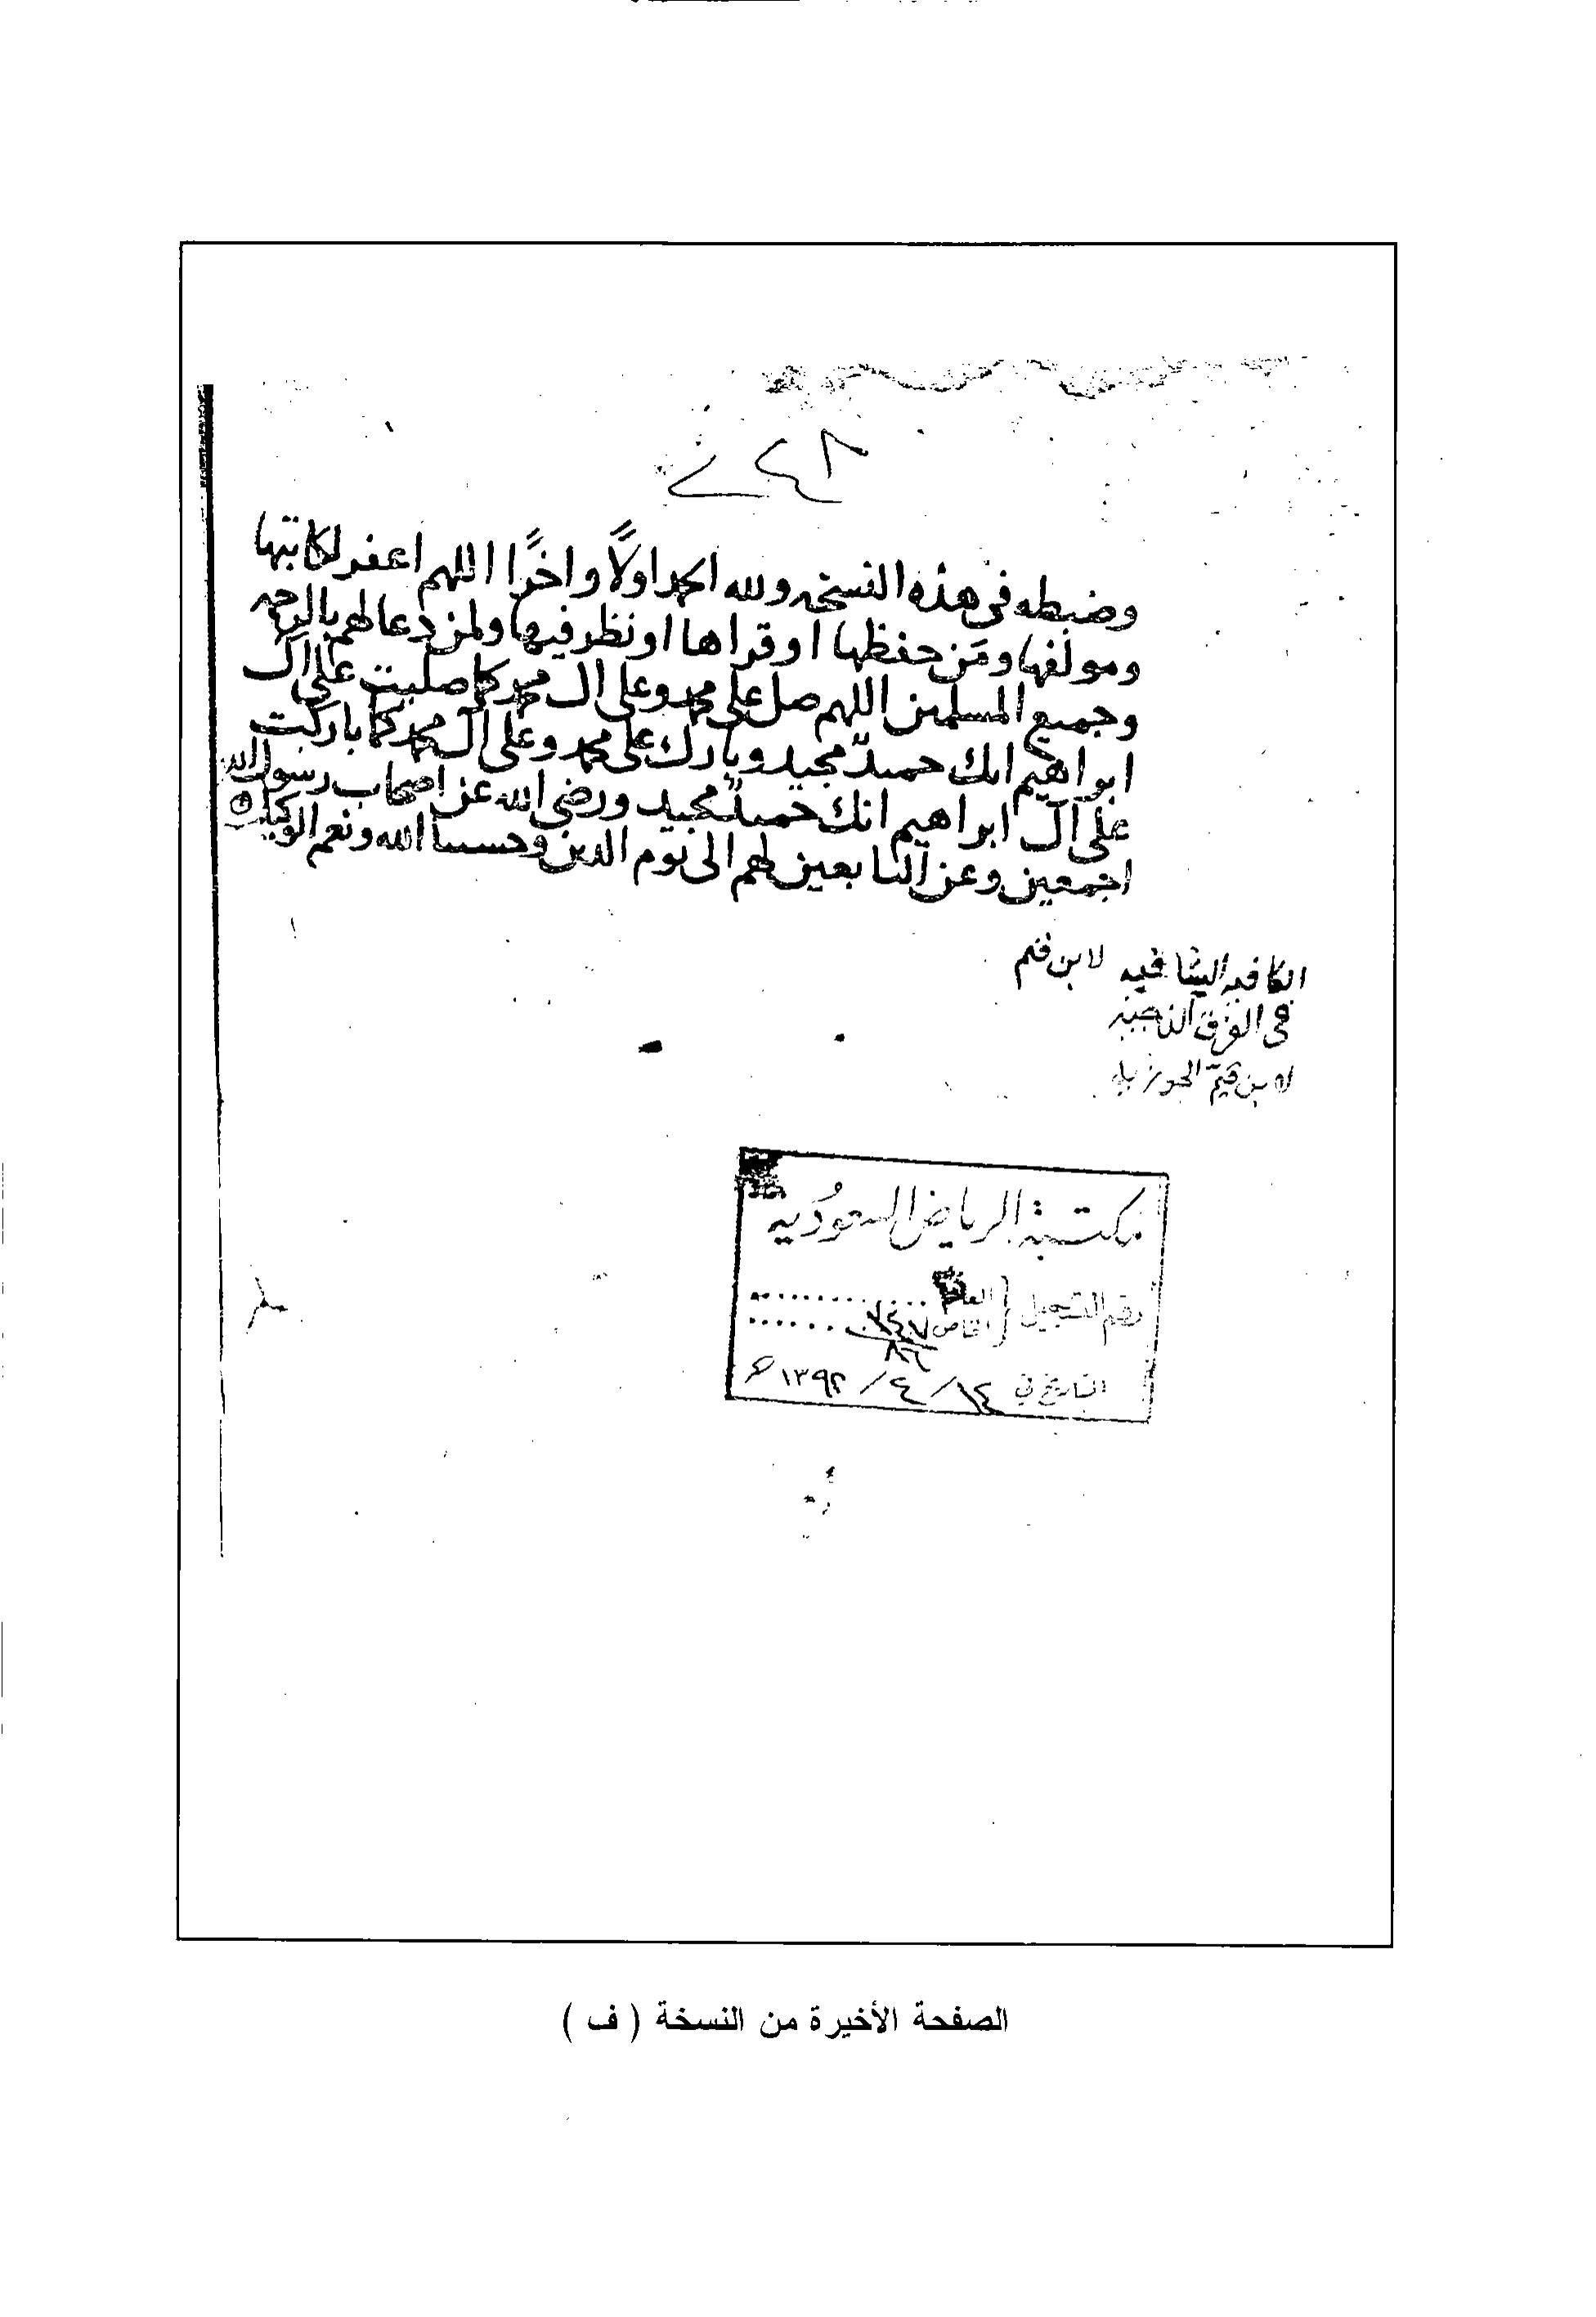 وضبطه في هذه النسخه ولله الحمد اولًا واخرًا اللهم اغفر لكاتبها
ومولفها ومَن حفظها او قراها او نظر فيها ولمن دعا لهم بالرحمه
وجميع المسلمين اللهم صل على محمد وعلى ال محمد كما صليت على ال
ابراهيم انك حميدٌ مجيد وبارك على محمد وعلى آل محمد كما باركت
على آل ابراهيم انك حميدٌ مجيد ورضي الله عن اصحاب رسول الله
اجمعين وعن التابعين لهم الى يوم الدين وحسبنا الله ونعم الوكيل
الكافيه الشافيه لابن قيم
في الفرق الناجيه
لابن قيّم الجوزيه
مكتبة الرياض السعودية
رقم التسجيل العام
الخاص
٨٦
التاريخ في ١٤ / ٤ / ١٣٩٢ هـ
الصفحة الأخيرة من النسخة ( ف )